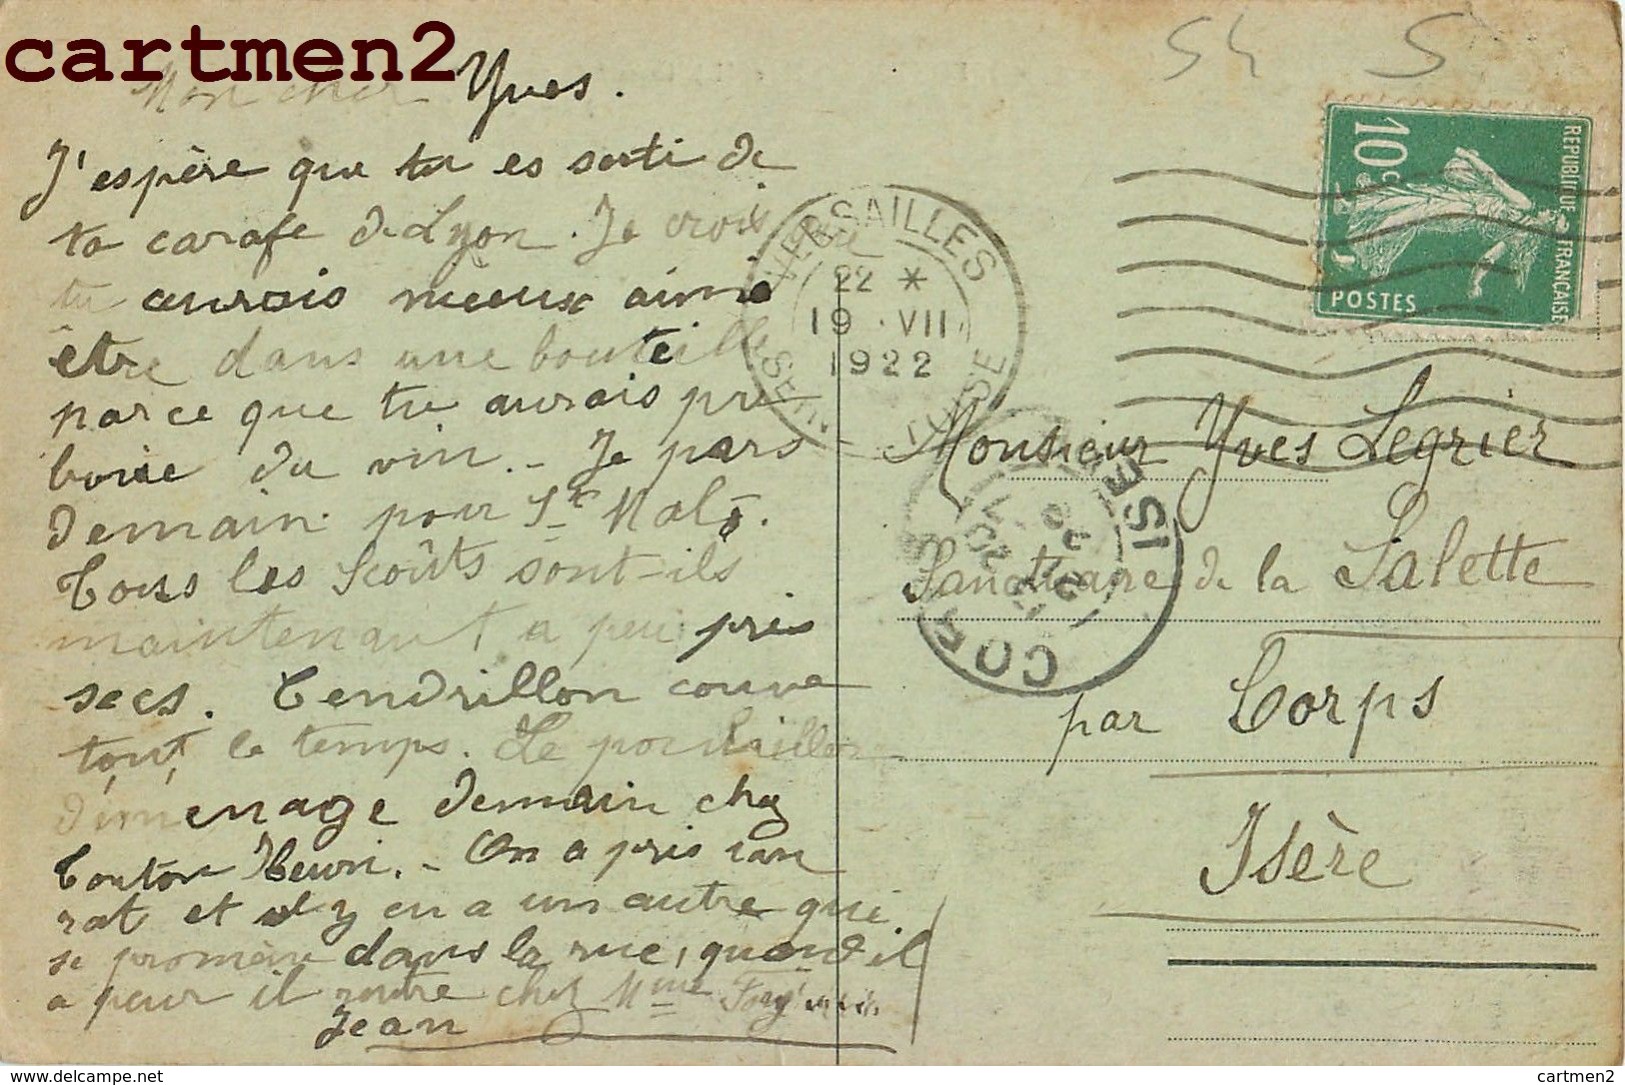 cartmen2
Mon cher Yves.
J'espère que tu es sorti de
ta carafe de Lyon. Je crois que
tu aurais mieux aimé
être dans une bouteille
parce que tu aurais pu
boire du vin. - Je pars
Demain pour St Malo.
Tous les Scouts sont-ils
maintenant a peu près
secs. Cendrillon couve
tout le temps. Le poulailler
déménage demain chez
tonton Henri. - On a pris un
rat et il y en a un autre qui
se promène dans la rue, quand il
a peur il rentre chez Mme
Jean
54 5
REPUBLIQUE FRANÇAISE
10c
POSTES
VERSAILLES
22 *
19 VII
1922
SEINE OISE
Monsieur Yves Legrier
Sanctuaire de la Salette
par Corps
Isère
CORPS
ISERE
delcampe.net
cartmen2